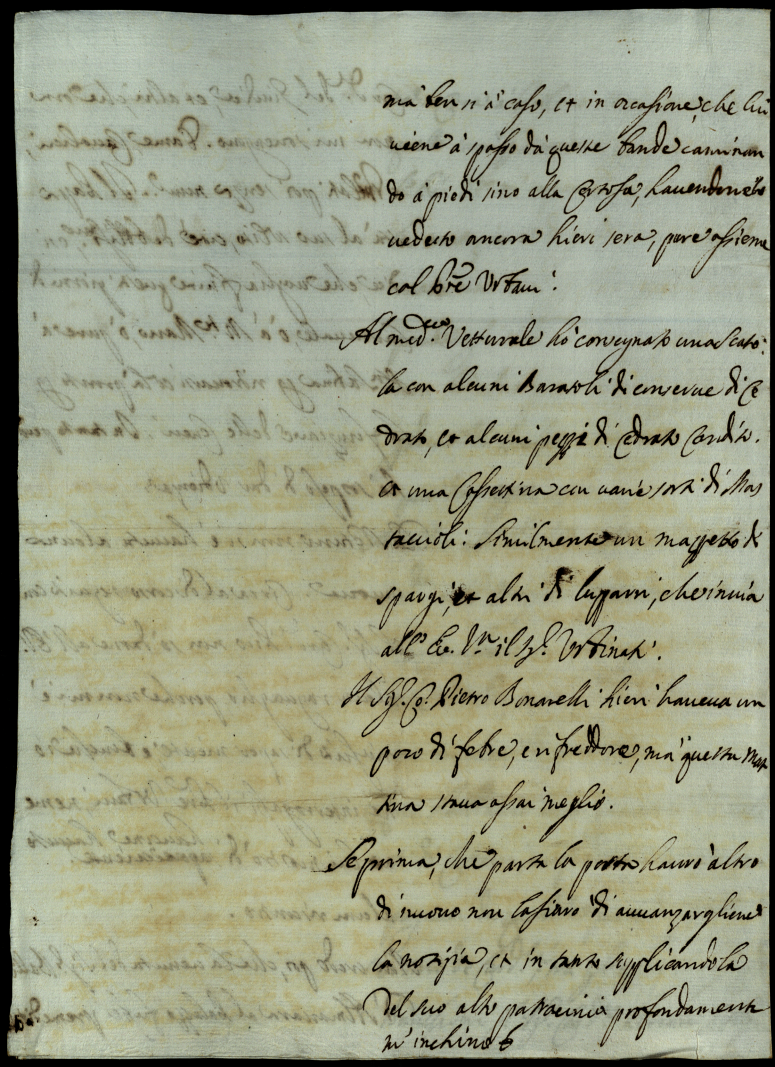 mà ben sì à caso, et in occasione, che lui
viene à spasso dà queste bande caminan
do à piedi sino alla Certosa, havendonelo
veduto ancora hieri sera, pure assieme
col Pre Urbani.
Al med.mo Vetturale hò consegnato una Scato:
la con alcuni Barattoli di conserve di Ce
drato, et alcuni pezzi di Cedrato Candito.
et una Cassettina con varie sorti di Mos
taccioli: Similmente un mazzetto di
spargi, et altri di lupparri, che invia
all' Ecc. Vra il Sr. Urbinati.
Il Sig.r Co: Pietro Bonarelli hieri haveva un
poco di febre, e rifreddore, mà questa mat
tina stava assai meglio.
Se prima, che parta la posta haurò altro
di nuovo non lasciarò di avvanzargliene
la notizia, et in tanto supplicandola
del suo alto patrocinio profondamente
m'inchino